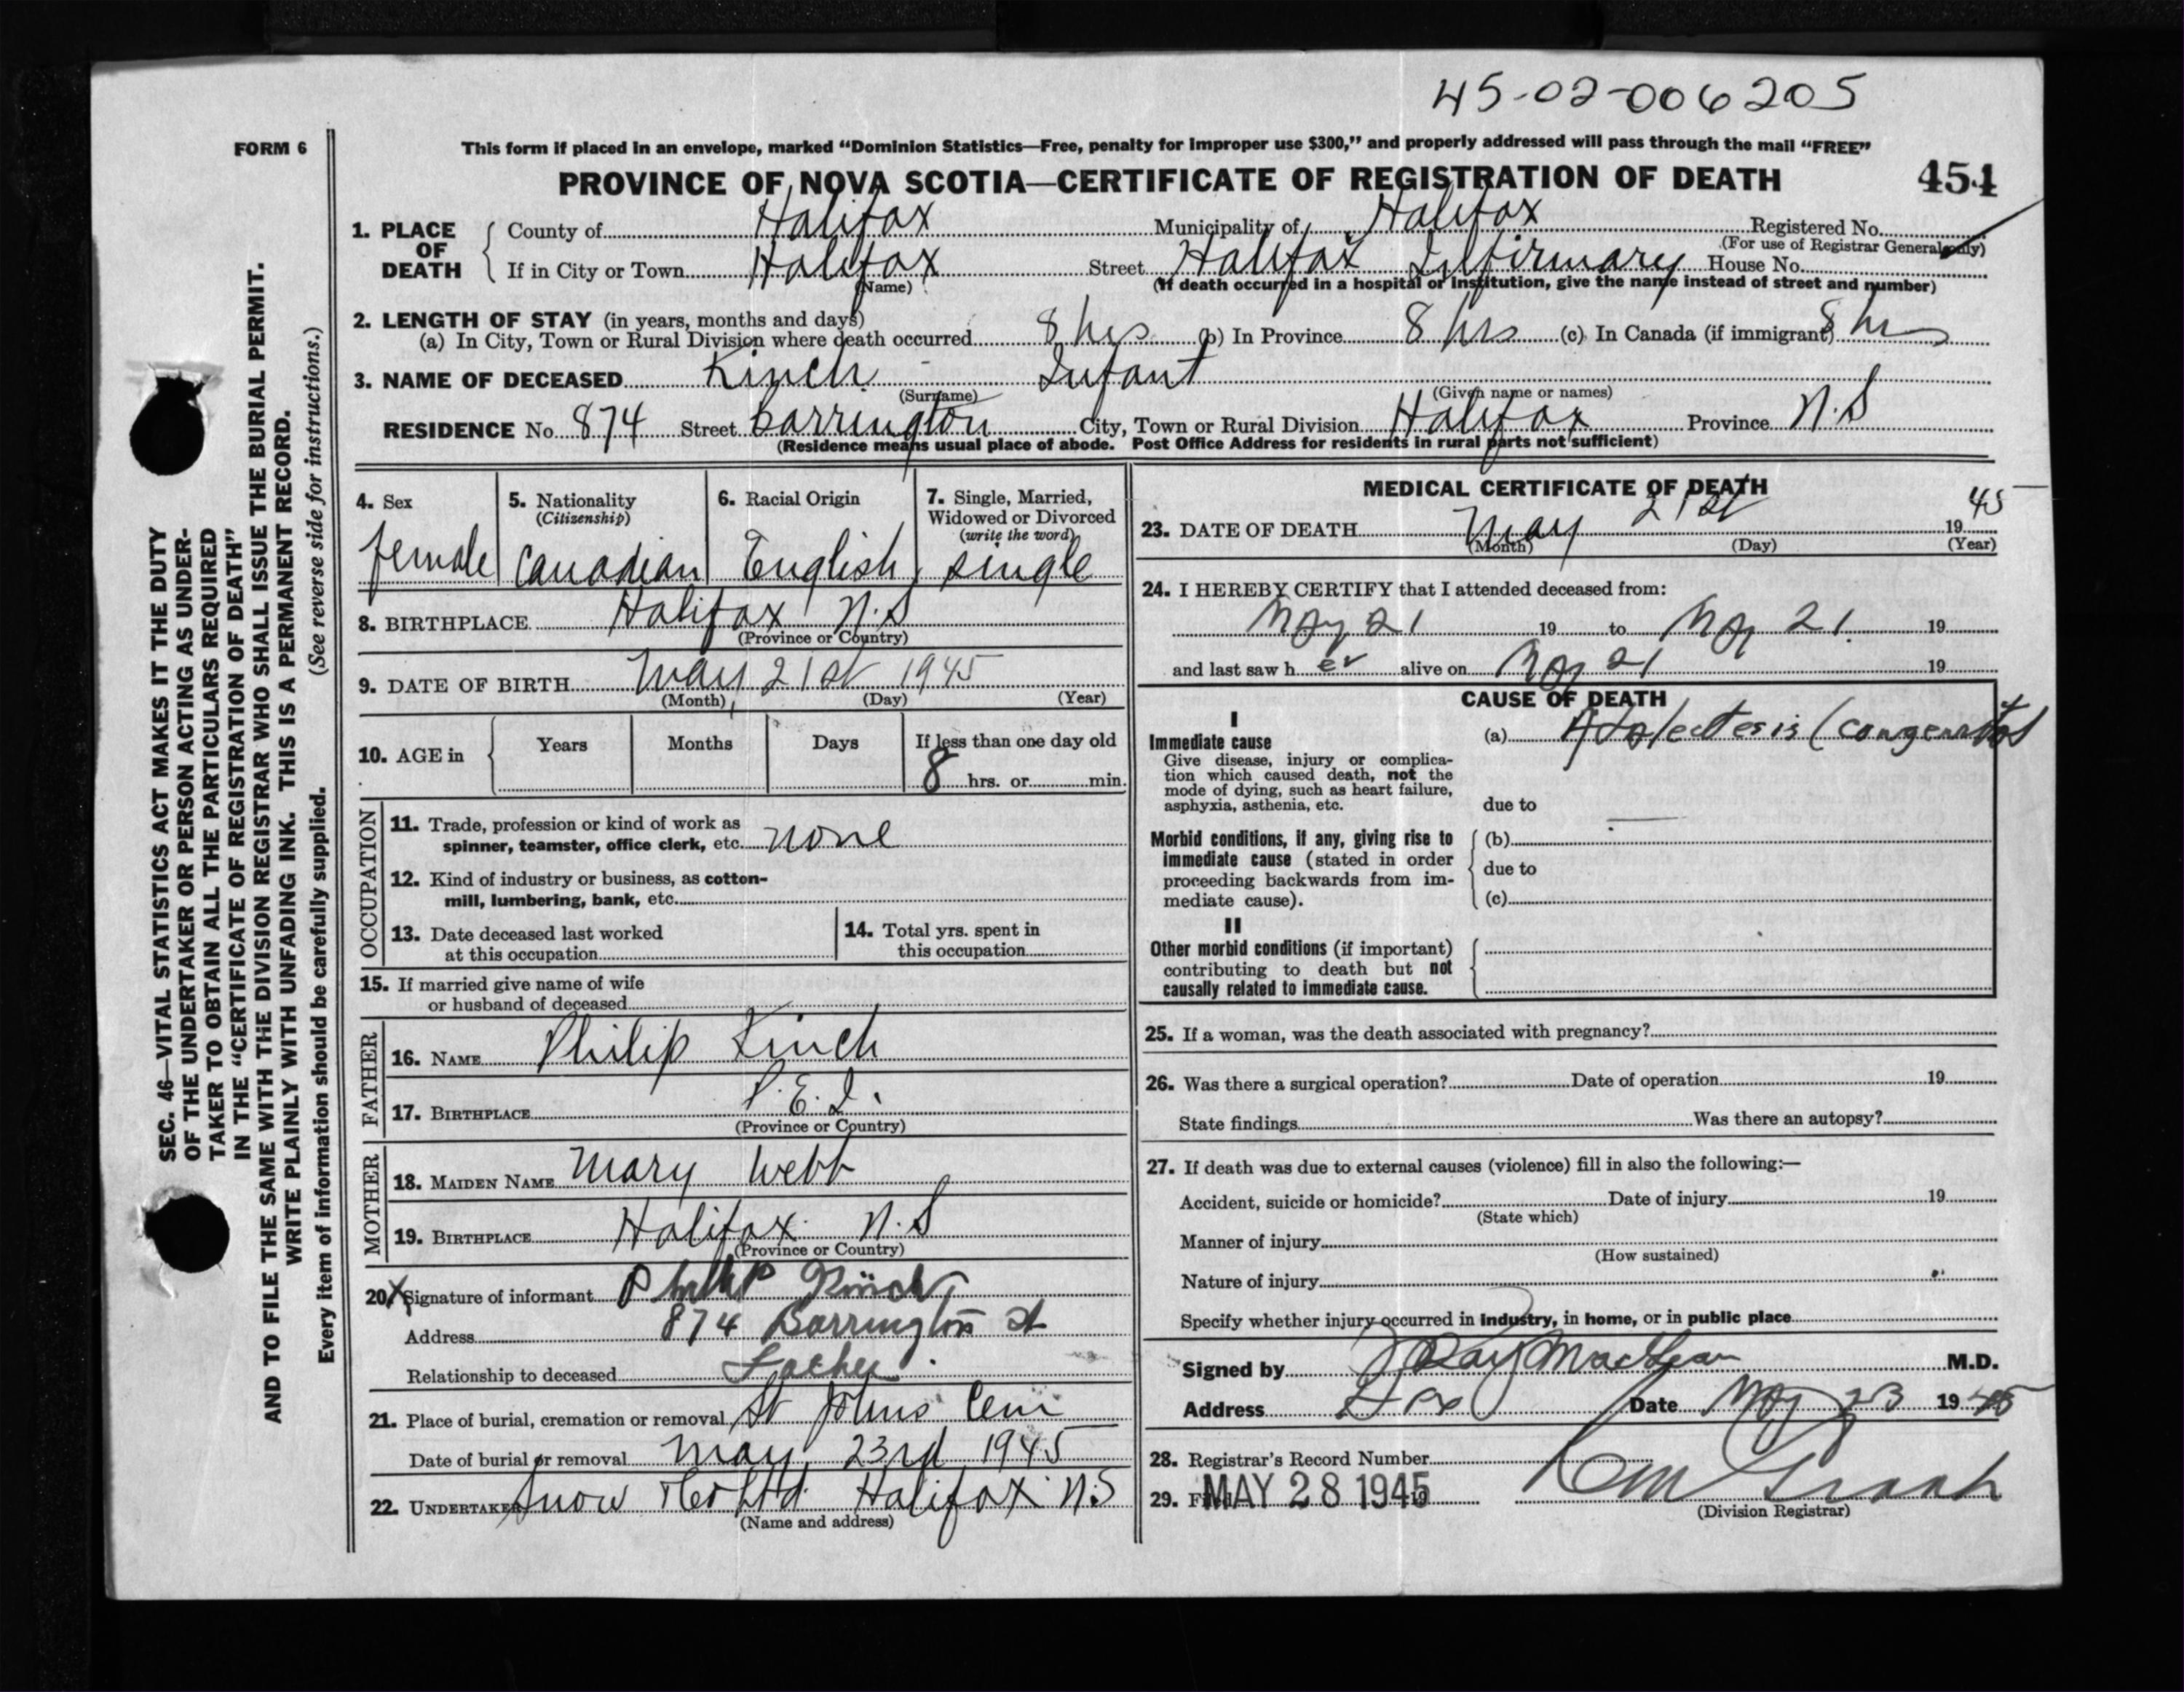 45-02-006205
FORM 6
This form if placed in an envelope, marked “Dominion Statistics—Free, penalty for improper use $300,” and properly addressed will pass through the mail “FREE”
PROVINCE OF NOVA SCOTIA—CERTIFICATE OF REGISTRATION OF DEATH 454
1. PLACE OF DEATH
County of Halifax Municipality of Halifax Registered No.
(For use of Registrar General only)
If in City or Town Halifax Street Halifax Infirmary House No.
(Name) (If death occurred in a hospital or institution, give the name instead of street and number)
2. LENGTH OF STAY (in years, months and days)
(a) In City, Town or Rural Division where death occurred 8 hrs (b) In Province 8 hrs (c) In Canada (if immigrant) 8 hrs
3. NAME OF DECEASED Kinch - Infant
(Surname) (Given name or names)
RESIDENCE No. 874 Street Barrington City, Town or Rural Division Halifax Province N.S
(Residence means usual place of abode. Post Office Address for residents in rural parts not sufficient)
4. Sex
female
5. Nationality
(Citizenship)
Canadian
6. Racial Origin
English
7. Single, Married,
Widowed or Divorced
(write the word)
single
8. BIRTHPLACE Halifax N.S
(Province or Country)
9. DATE OF BIRTH May 21st 1945
(Month) (Day) (Year)
10. AGE in Years Months Days If less than one day old
8 hrs. or min.
OCCUPATION
11. Trade, profession or kind of work as
spinner, teamster, office clerk, etc. none
12. Kind of industry or business, as cotton-
mill, lumbering, bank, etc.
13. Date deceased last worked
at this occupation
14. Total yrs. spent in
this occupation
15. If married give name of wife
or husband of deceased
FATHER
16. NAME Philip Kinch
17. BIRTHPLACE P.E.I.
(Province or Country)
MOTHER
18. MAIDEN NAME Mary Webb
19. BIRTHPLACE Halifax N.S
(Province or Country)
20. X Signature of informant Philip Kinch
Address 874 Barrington St
Relationship to deceased Father
21. Place of burial, cremation or removal St Johns Cem
Date of burial or removal May 23rd 1945
22. UNDERTAKER Snow & Co Ltd. Halifax N.S
(Name and address)
MEDICAL CERTIFICATE OF DEATH
23. DATE OF DEATH May 21st 1945
(Month) (Day) (Year)
24. I HEREBY CERTIFY that I attended deceased from:
May 21 19 to May 21. 19
and last saw her alive on May 21 19
CAUSE OF DEATH
I
Immediate cause
Give disease, injury or complica-
tion which caused death, not the
mode of dying, such as heart failure,
asphyxia, asthenia, etc.
(a) Atelectesis (congenital
due to
Morbid conditions, if any, giving rise to
immediate cause (stated in order
proceeding backwards from im-
mediate cause).
(b)
due to
(c)
II
Other morbid conditions (if important)
contributing to death but not
causally related to immediate cause.
25. If a woman, was the death associated with pregnancy?
26. Was there a surgical operation? Date of operation 19
State findings Was there an autopsy?
27. If death was due to external causes (violence) fill in also the following:—
Accident, suicide or homicide? Date of injury 19
(State which)
Manner of injury
(How sustained)
Nature of injury
Specify whether injury occurred in industry, in home, or in public place
Signed by J Ray MacLean M.D.
Address Date May 23 1945
28. Registrar's Record Number
29. Filed MAY 28 1945 19
(Division Registrar)
SEC. 46—VITAL STATISTICS ACT MAKES IT THE DUTY
OF THE UNDERTAKER OR PERSON ACTING AS UNDER-
TAKER TO OBTAIN ALL THE PARTICULARS REQUIRED
IN THE “CERTIFICATE OF REGISTRATION OF DEATH”
AND TO FILE THE SAME WITH THE DIVISION REGISTRAR WHO SHALL ISSUE THE BURIAL PERMIT.
WRITE PLAINLY WITH UNFADING INK. THIS IS A PERMANENT RECORD.
Every item of information should be carefully supplied. (See reverse side for instructions.)